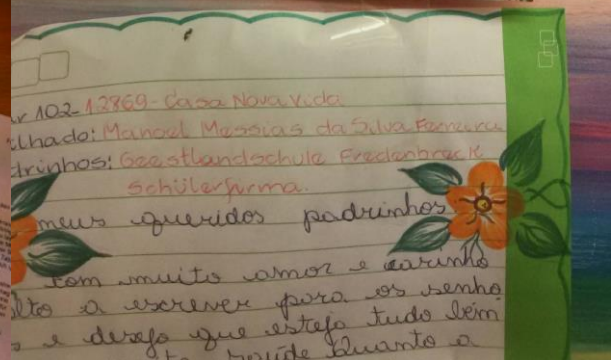 102-12869-Casa Nova Vida
lhado: Manoel Messias da Silva Ferreira
drinhos: Geestlandschule Fredenbreck
Schülerfirma.
meus queridos padrinhos
com muito amor e carinho
lto a escrever para os senho
s e desejo que esteja tudo bem
saúde Quanto a